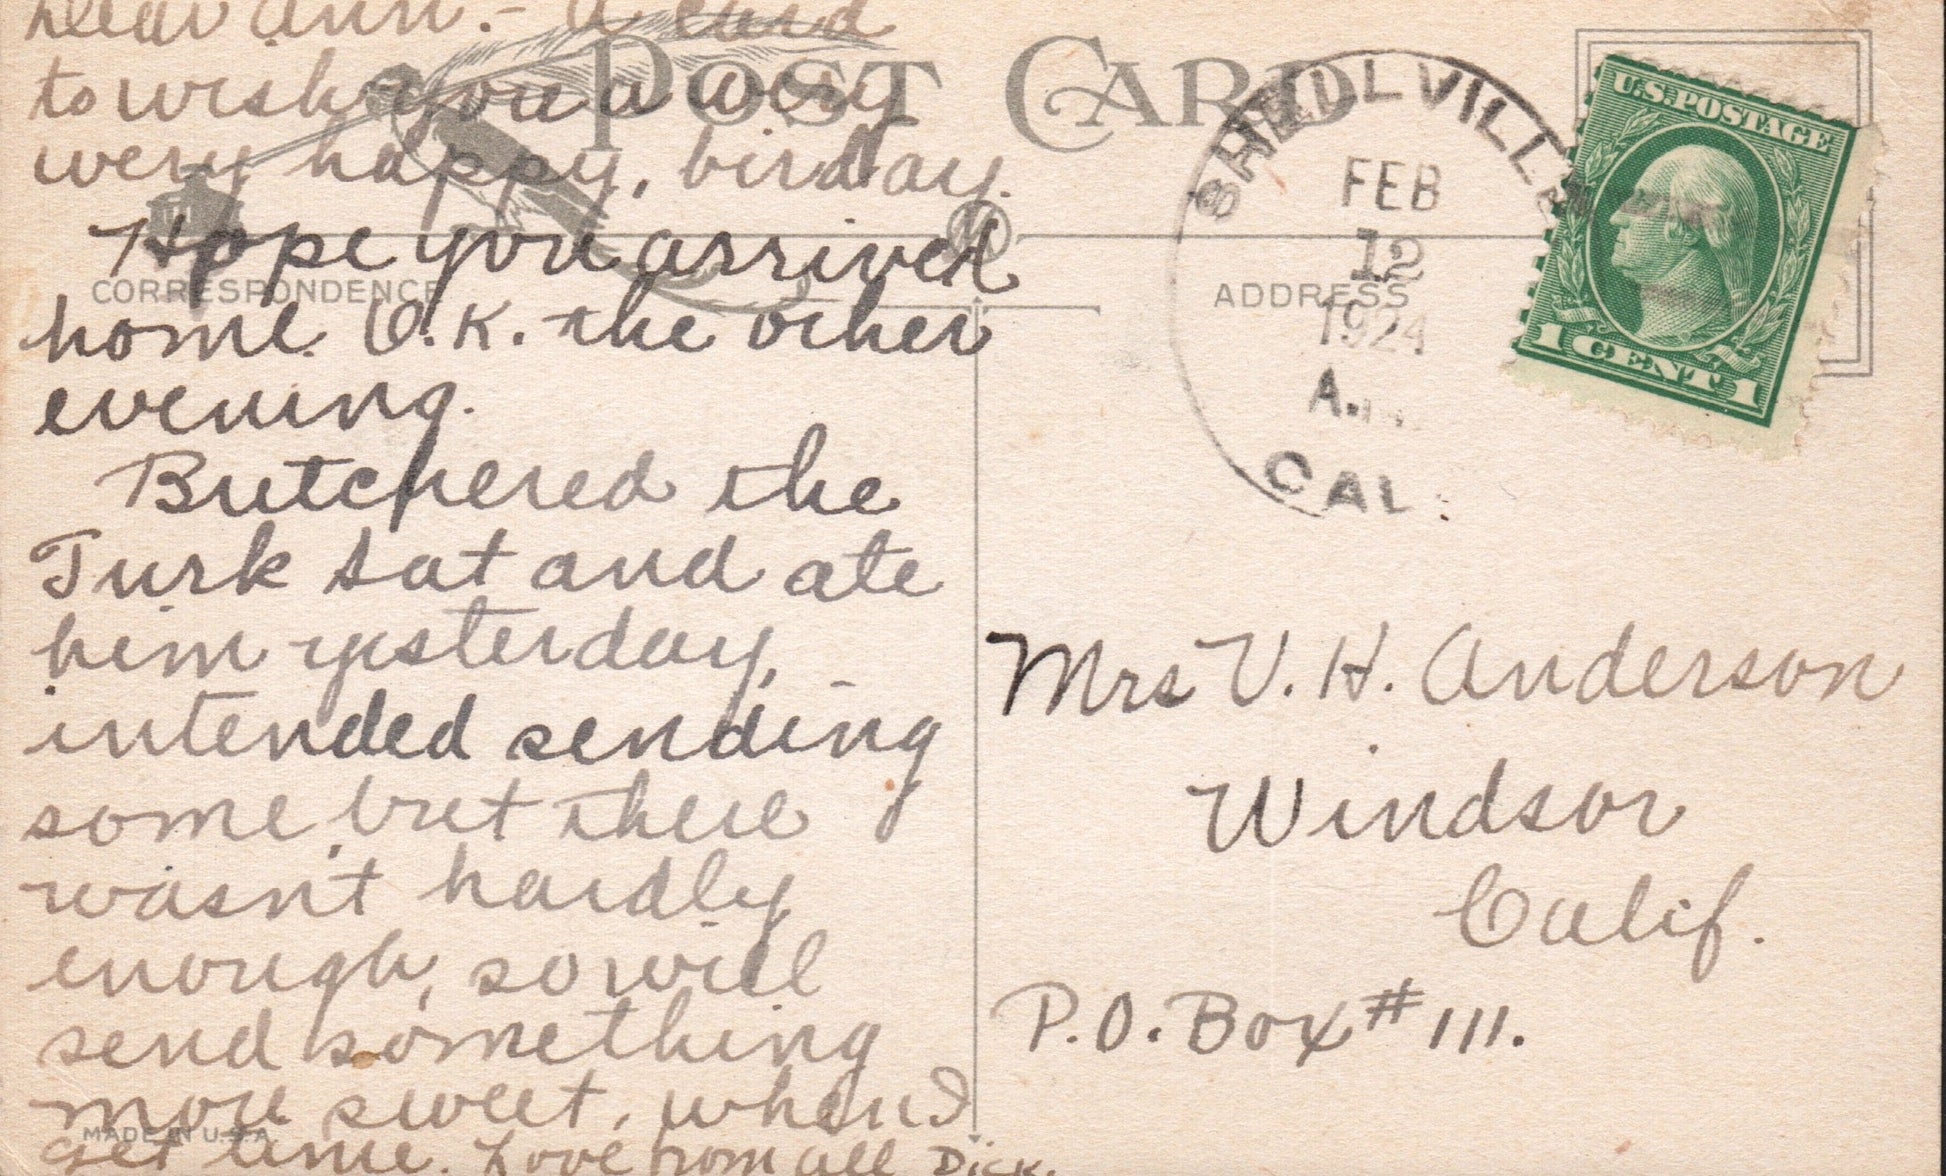 Dear Ann. - A card
to wish you a wery
wery happy, birdday.
Hope you arrived
home O.K. the other
evening.
Butchered the
Turk Sat and ate
him yesterday,
intended sending
some, but there
wasn't hardly
enough, so will
send something
more sweet, when I
get time. Love from all Dick.
POST CARD
CORRESPONDENCE
ADDRESS
MADE IN U.S.A.
SHELLVILLE
FEB
12
1924
A.M.
CAL.
U.S. POSTAGE
1 CENT 1
Mrs V. H. Anderson
Windsor
Calif.
P.O. Box # 111.